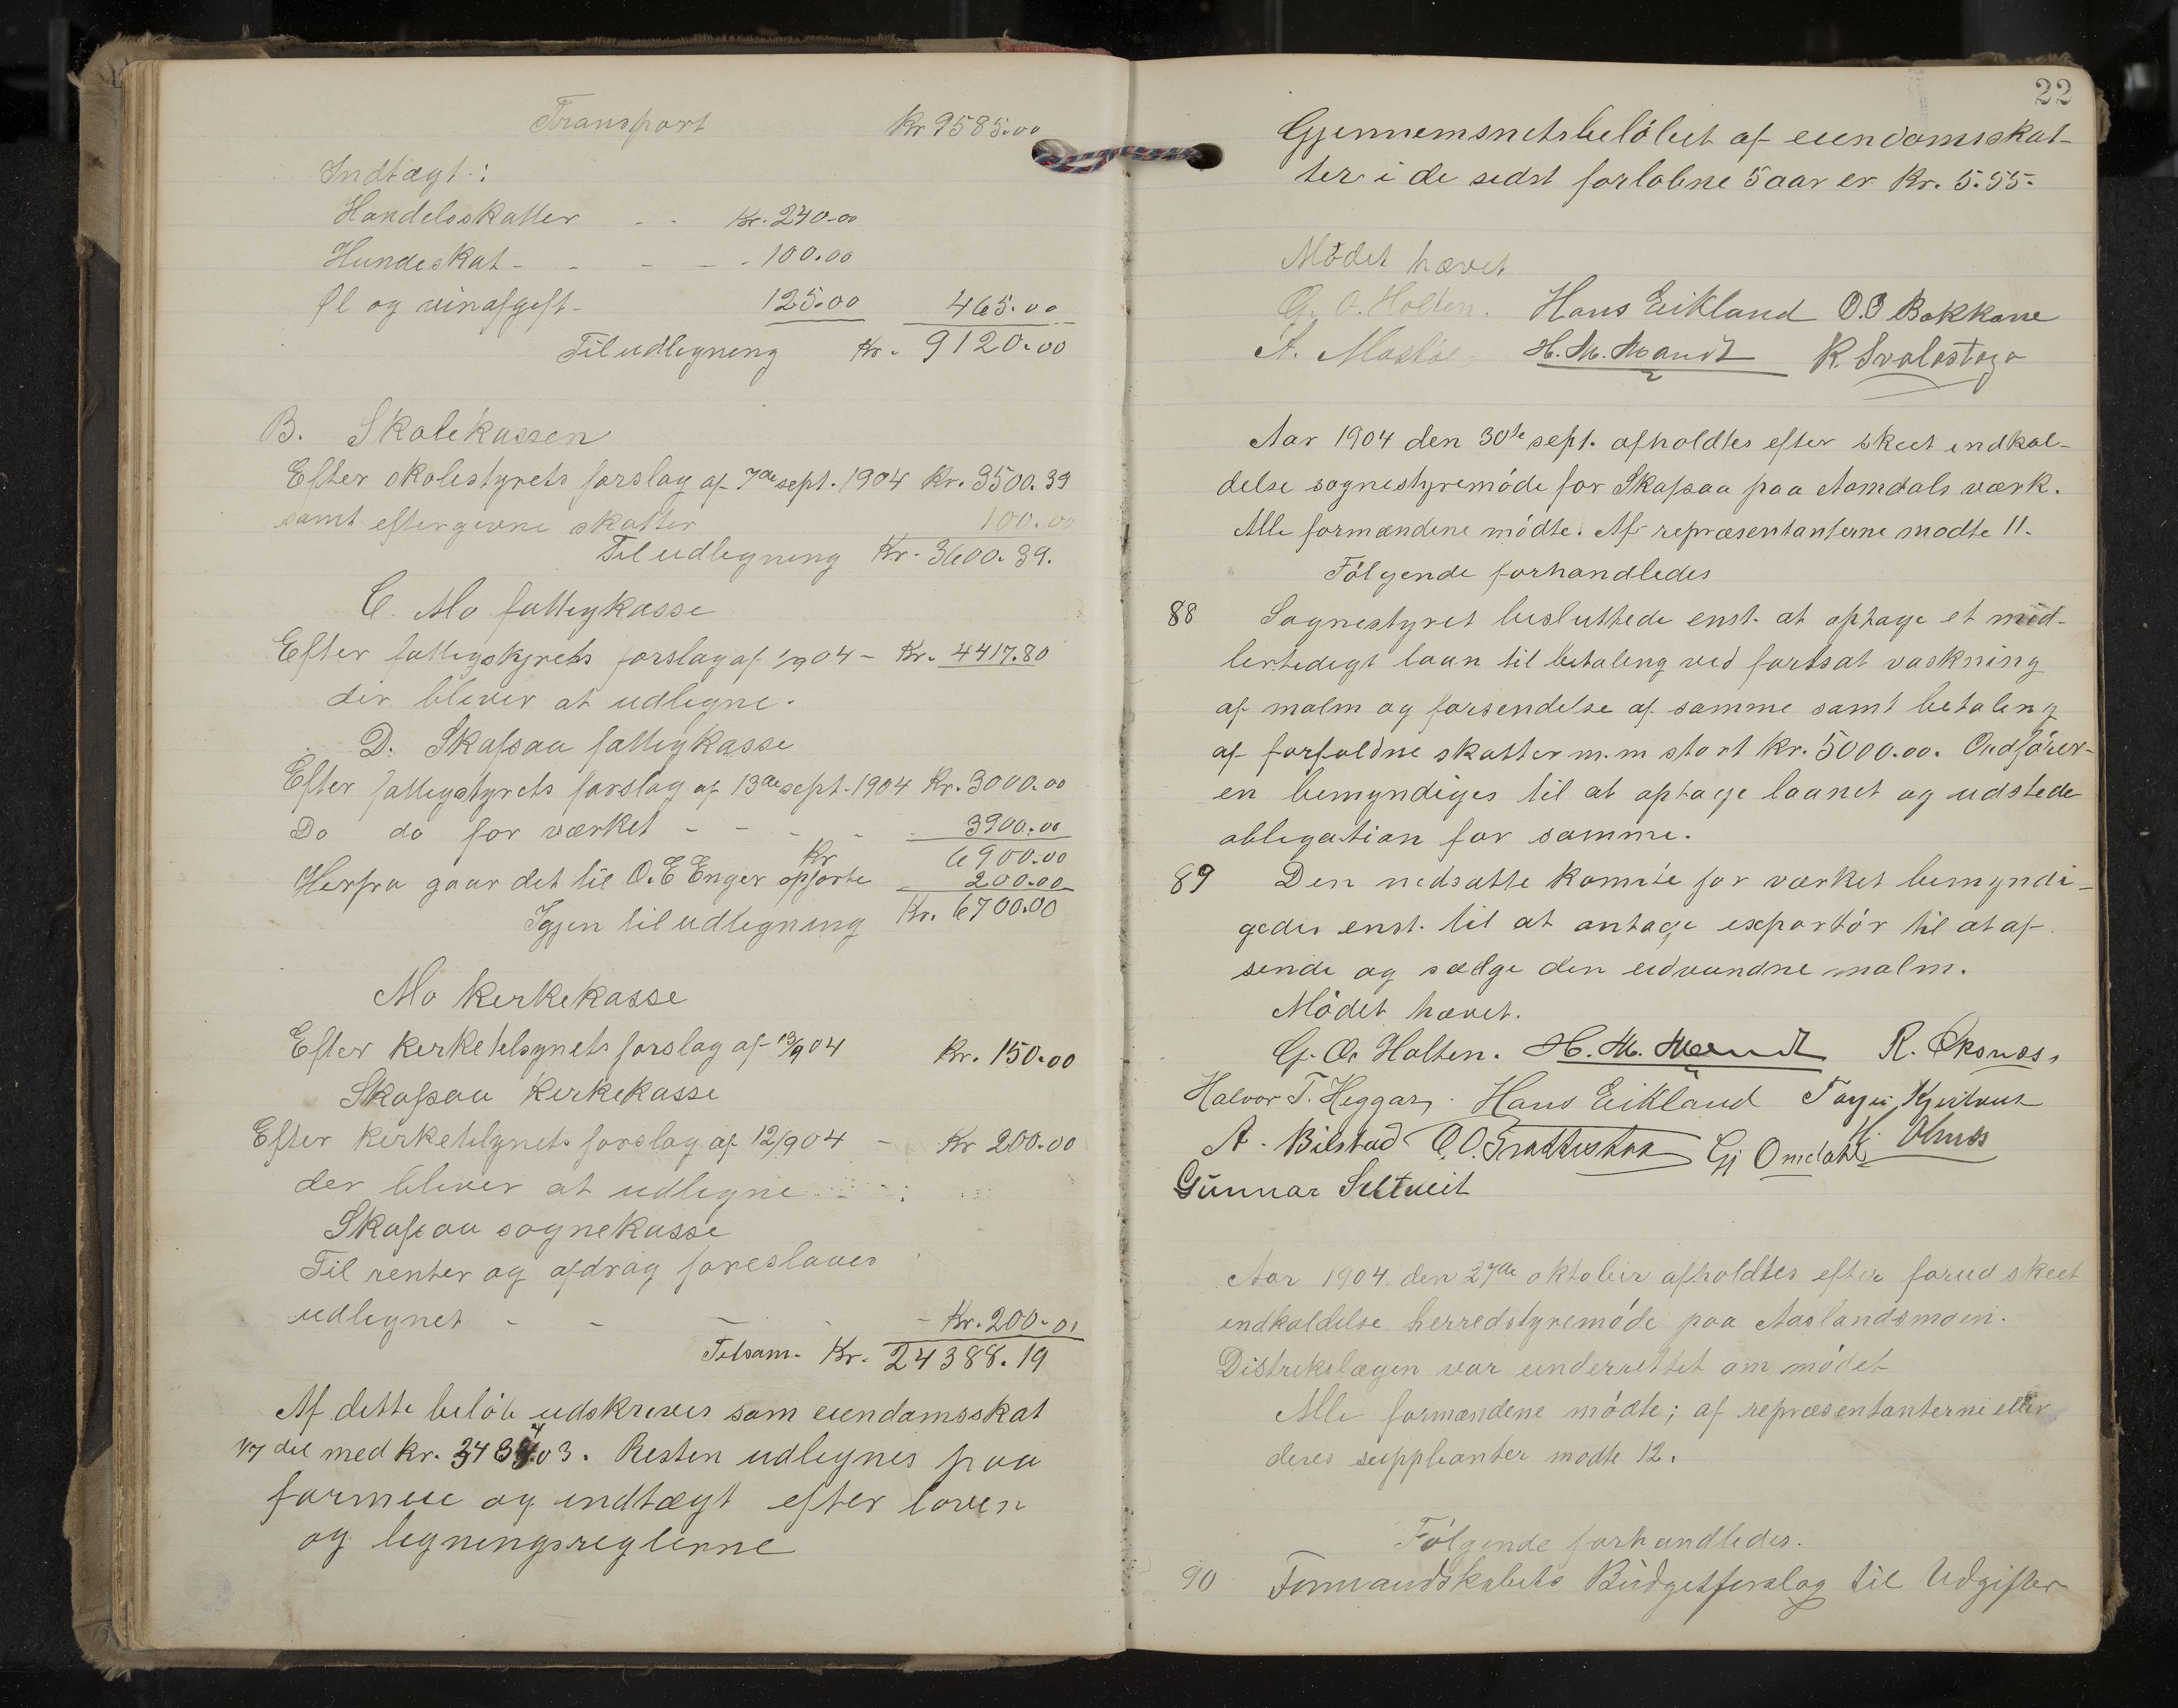 Transport Kr 9585.00
Indtægt:
Handelsskatter - - Kr. 240.00
Hundeskat - - - - - 100.00
Øl og vinafgift - 125.00 465.00
Til udligning Kr. 9120.00
B. Skolekassen
Efter skolestyrets forslag af 7de sept. 1904 Kr. 3500.39
samt eftergivne skatter 100.00
Til udligning Kr. 3600.39.
C. Mo fattigkasse
Efter fattigstyrets forslag af 1/9 04 - Kr. 4417.80
der bliver at udligne.
D. Skafsaa fattigkasse
Efter fattigstyrets forslag af 13de sept. 1904 Kr. 3000.00
Do do for værket - - - - 3900.00
Kr 6900.00
Herfra gaar det til O.E Enger opførte 200.00
Igjen til udligning Kr. 6700.00
Mo kirkekasse
Efter kirketilsynets forslag af 13/9 04 Kr. 150.00
Skafsaa kirkekasse
Efter kirketilsynets forslag af 12/9 04 - Kr 200.00
der bliver at udligne
Skafsaa sognekasse
Til renter og afdrag foreslaaes
udlignet - - - - - Kr. 200.00
Tilsam. Kr. 24388.19
Af dette beløb udskrives som eiendomsskat
1/7 del med kr. 3484.03. Resten udlignes paa
formue og indtægt efter loven
og ligningsreglerne
22
Gjennemsnitsbeløbet af eiendomsskat-
ter i de sidst forløbne 5 aar er Kr. 5.55.
Mødet hævet
G. O. Holten. Hans Eikland O.O Bakkane
A. H. M. Mandt K. Svalastoga
Aar 1904 den 30te sept. afholdtes efter skeet indkal-
delse sognestyremøde for Skafsaa paa Aamdals værk.
Alle formændene mødte. Af repræsentanterne mødte 11.
Følgende forhandledes
88 Sognestyret besluttede enst. at optage et mid-
lertidigt laan til betaling ved fortsat vaskning
af malm og forsendelse af samme samt betaling
af forfaldne skatter m.m stort kr. 5000.00. Ordfører-
en bemyndiges til at optage laanet og udstede
obligation for samme.
89 Den nedsatte komite for værket bemyndi-
gedes enst. til at antage exportør til at af-
sende og sælge den udvundne malm.
Mødet hævet.
G. O. Holten. H. M. Mandt R. Øksnæs,
Halvor T. Heggar. Hans Eikland
A. Bilstad Gj Omdahl
Gunnar Seltveit
Aar 1904 den 27de oktober afholdtes efter forud skeet
indkaldelse herredstyremøde paa Aaslandsmoen.
Distrikslægen var underrettet om mødet
Alle formændene mødte; af repræsentanterne eller
deres suppleanter mødte 12.
Følgende forhandledes.
90 Formandskabets Budgetforslag til Udgifter